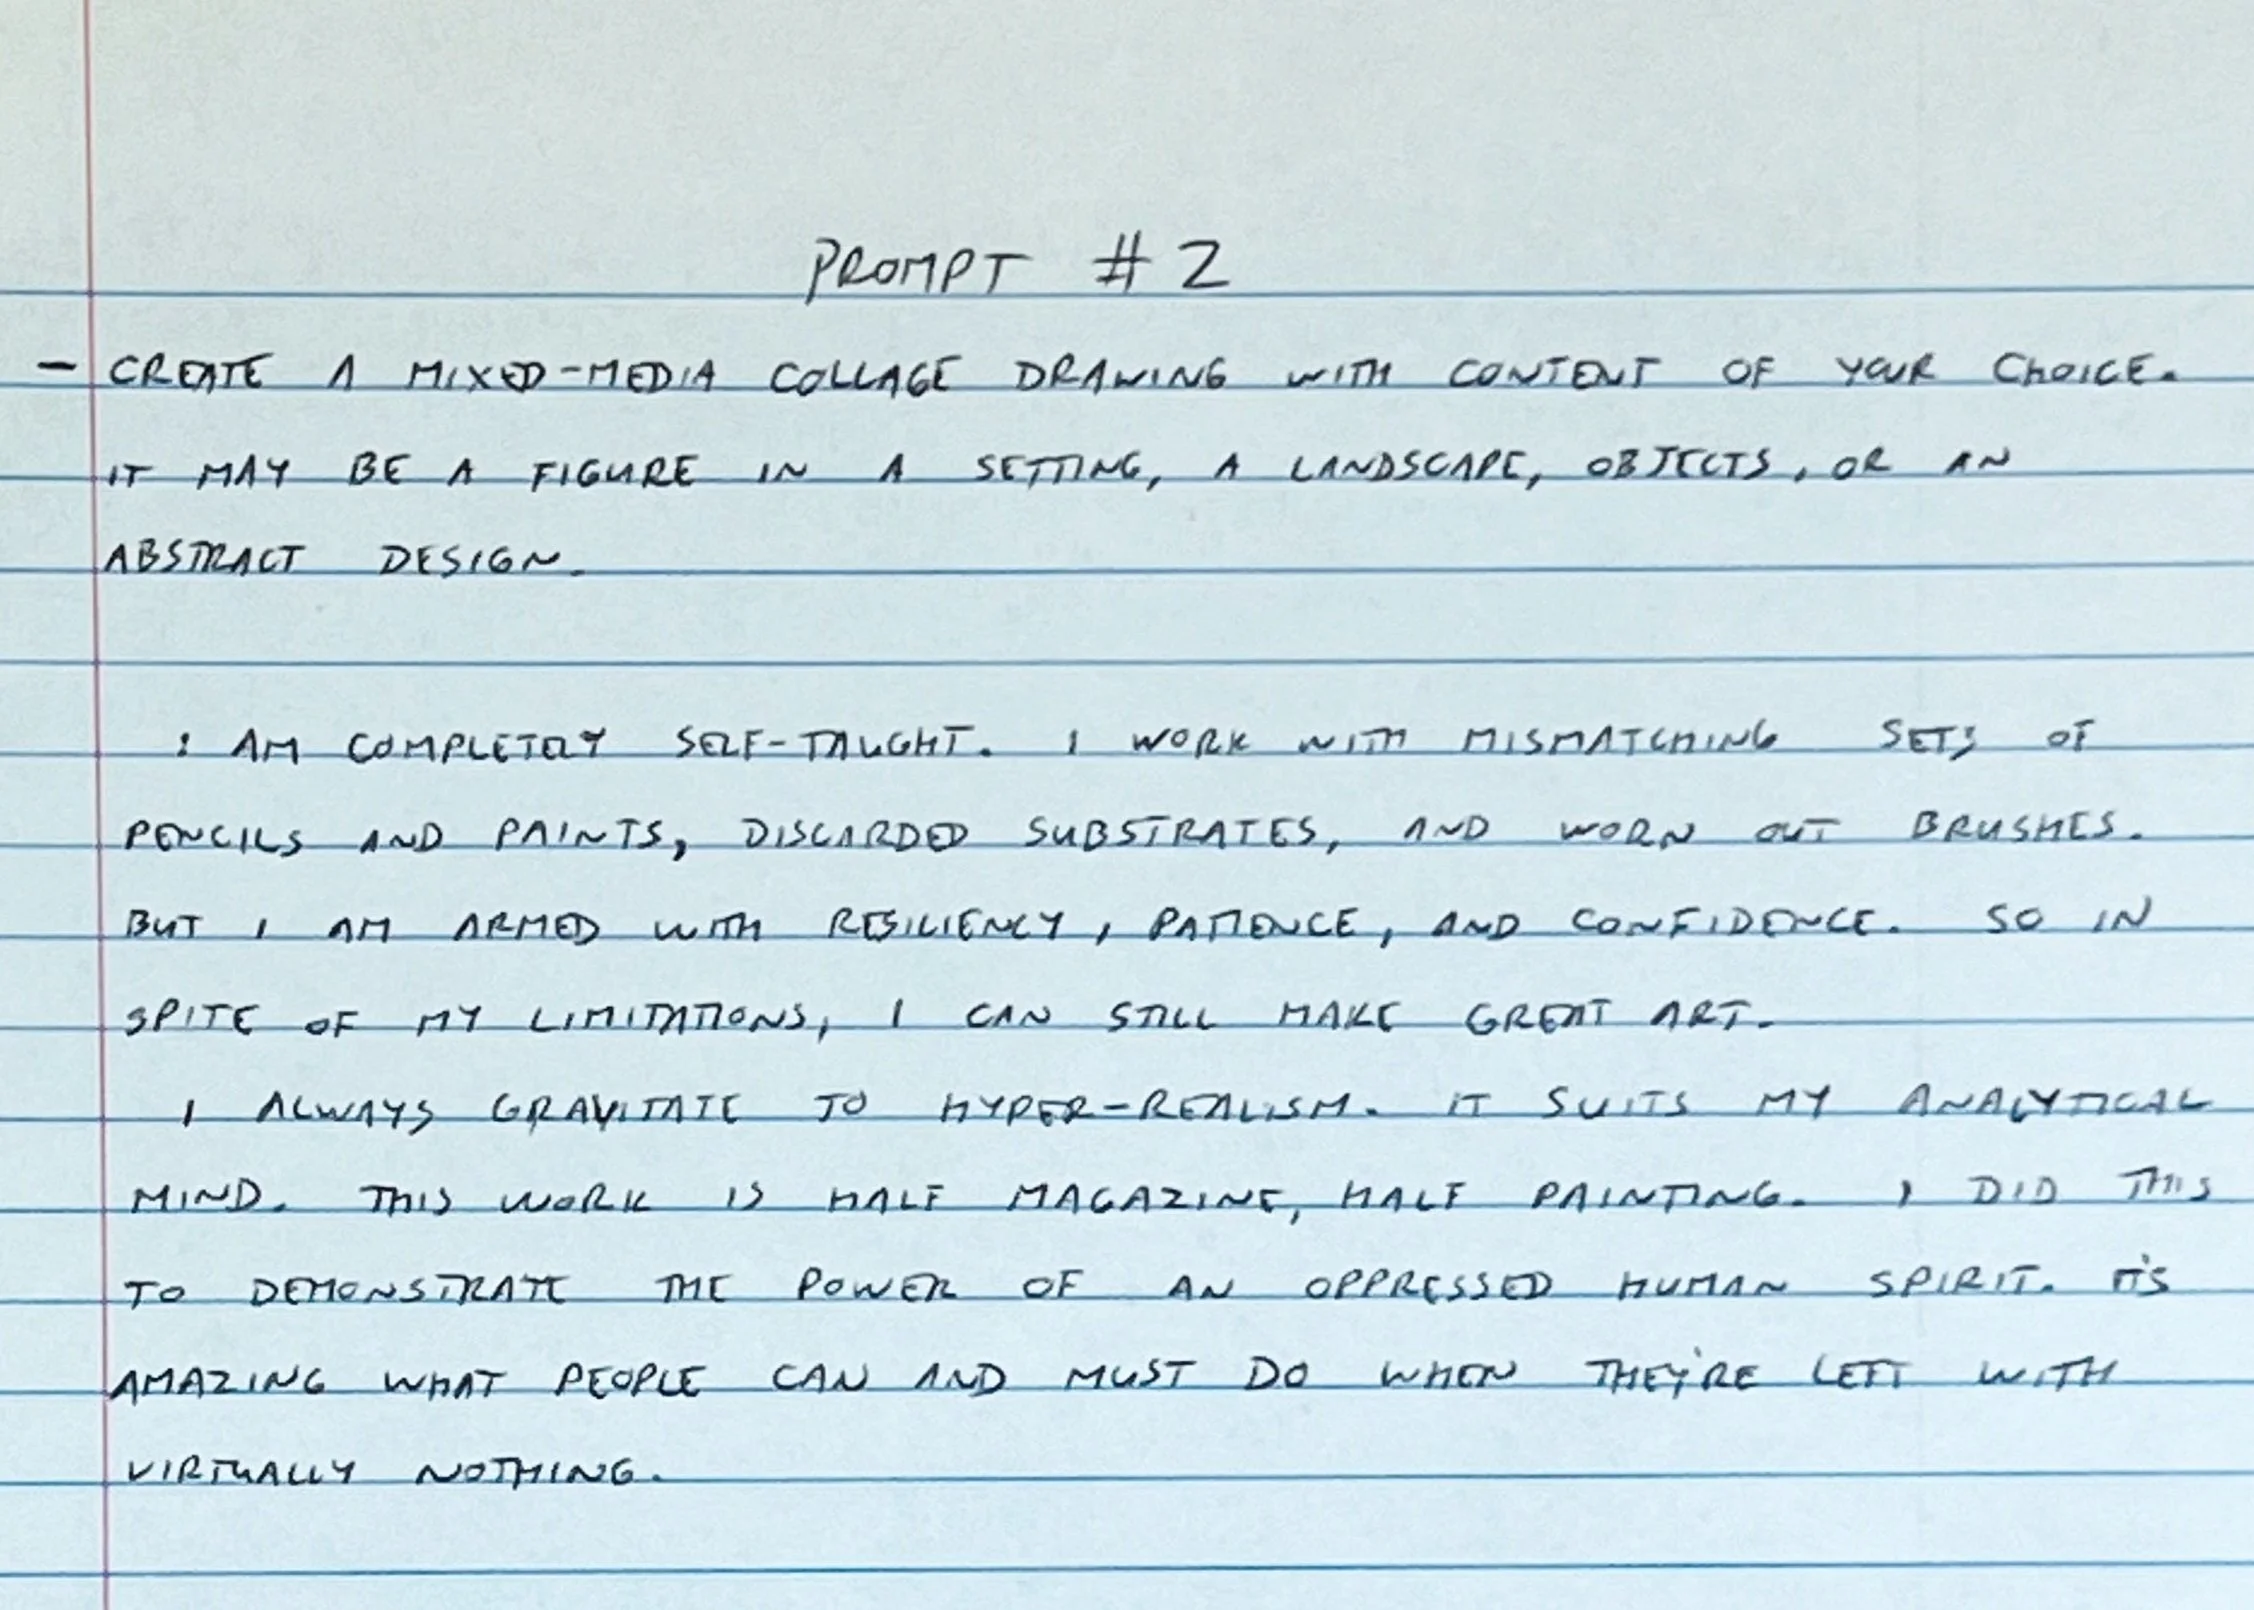 PROMPT #2
- CREATE A MIXED-MEDIA COLLAGE DRAWING WITH CONTENT OF YOUR CHOICE.
IT MAY BE A FIGURE IN A SETTING, A LANDSCAPE, OBJECTS, OR AN
ABSTRACT DESIGN.
I AM COMPLETELY SELF-TAUGHT. I WORK WITH MISMATCHING SETS OF
PENCILS AND PAINTS, DISCARDED SUBSTRATES, AND WORN OUT BRUSHES.
BUT I AM ARMED WITH RESILIENCY, PATIENCE, AND CONFIDENCE. SO IN
SPITE OF MY LIMITATIONS, I CAN STILL MAKE GREAT ART.
I ALWAYS GRAVITATE TO HYPER-REALISM. IT SUITS MY ANALYTICAL
MIND. THIS WORK IS HALF MAGAZINE, HALF PAINTING. I DID THIS
TO DEMONSTRATE THE POWER OF AN OPPRESSED HUMAN SPIRIT. IT'S
AMAZING WHAT PEOPLE CAN AND MUST DO WHEN THEY'RE LEFT WITH
VIRTUALLY NOTHING.